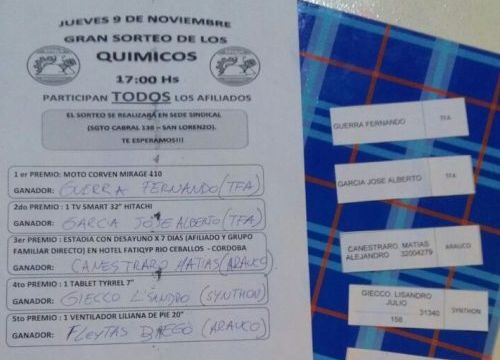 JUEVES 9 DE NOVIEMBRE
GRAN SORTEO DE LOS
QUIMICOS
17:00 Hs
PARTICIPAN TODOS LOS AFILIADOS
EL SORTEO SE REALIZARA EN SEDE SINDICAL
(SGTO CABRAL 138 – SAN LORENZO).
TE ESPERAMOS!!!
1 er PREMIO: MOTO CORVEN MIRAGE 110
GANADOR: GUERRA FERNANDO (TFA)
2do PREMIO : 1 TV SMART 32" HITACHI
GANADOR: GARCIA JOSE ALBERTO (TFA)
3er PREMIO : ESTADIA CON DESAYUNO X 7 DIAS (AFILIADO Y GRUPO
FAMILIAR DIRECTO) EN HOTEL FATIQYP RIO CEBALLOS - CORDOBA
GANADOR: CANESTRARO MATIAS (ARAUCO)
4to PREMIO : 1 TABLET TYRREL 7"
GANADOR: GIECCO LISANDRO (SYNTHON)
5to PREMIO : 1 VENTILADOR LILIANA DE PIE 20"
GANADOR: FLEYTAS DIEGO (ARAUCO)
GUERRA FERNANDO TFA
GARCIA JOSE ALBERTO TFA
CANESTRARO MATIAS
ALEJANDRO 32004279 ARAUCO
GIECCO, LISANDRO
JULIO 31340 SYNTHON
158